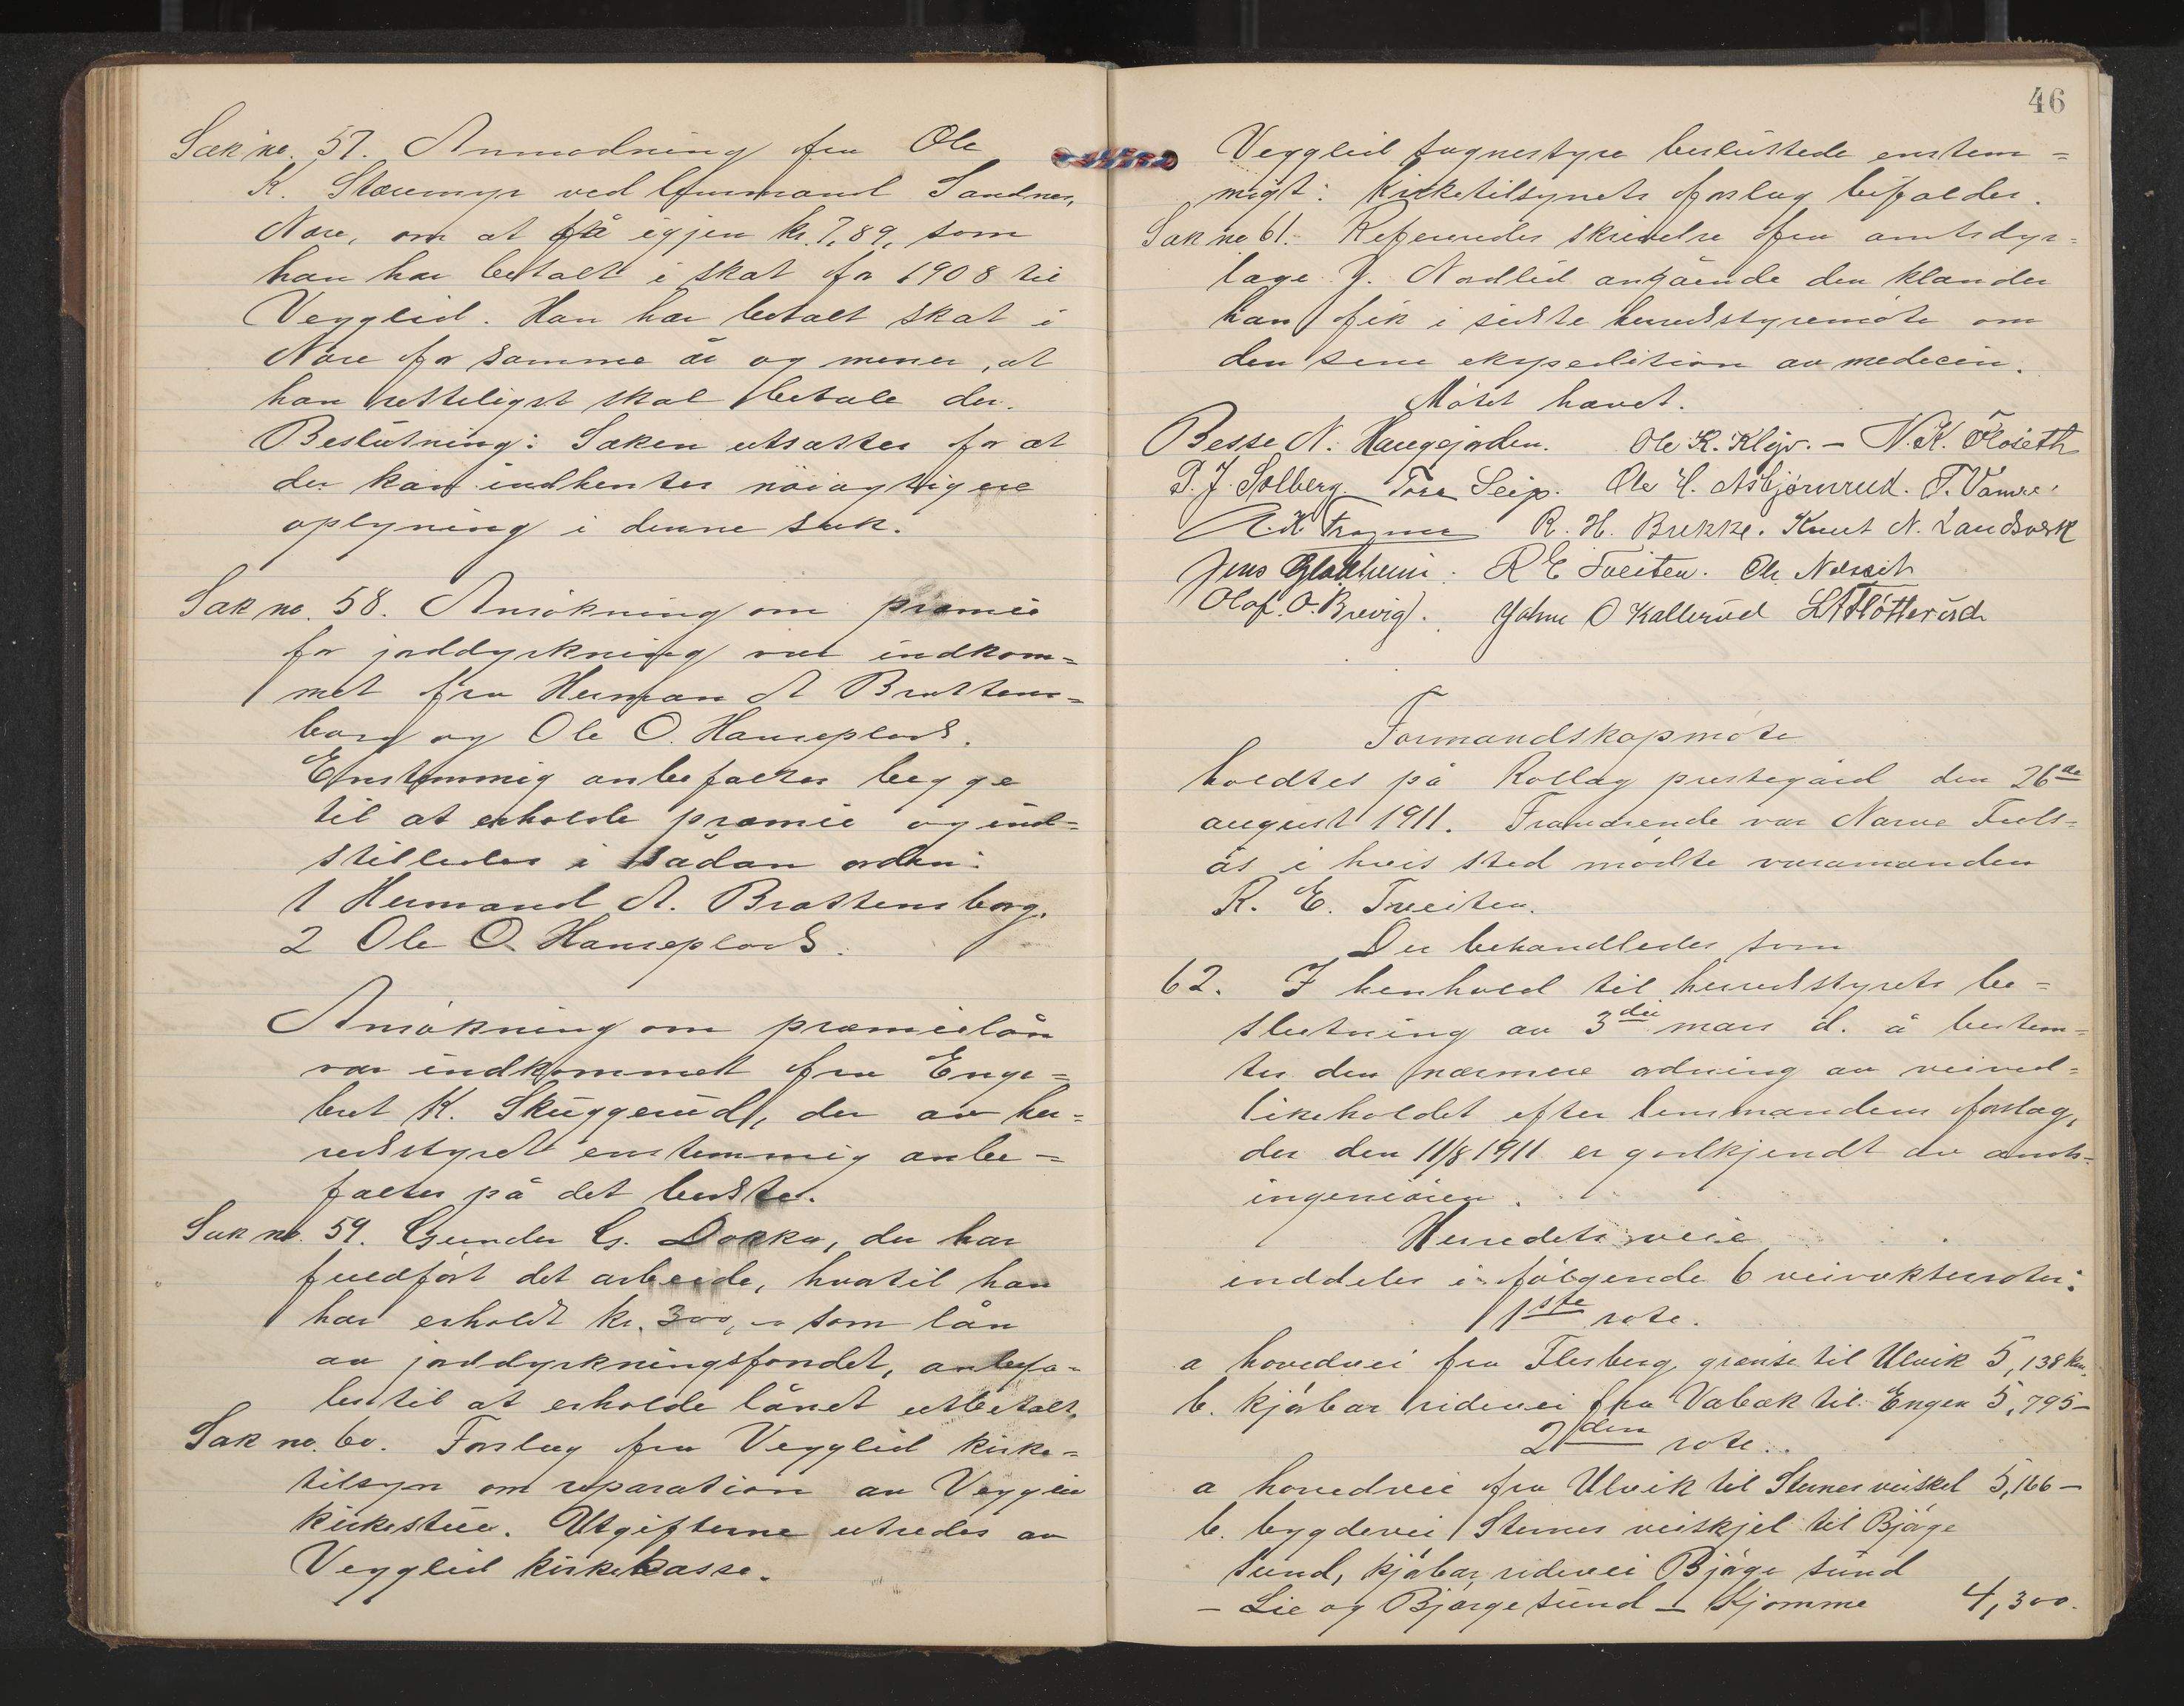 Sak no. 57. Anmodning fra Ole
K. Støvemyr ved lensmand Sandnes,
Nore, om at få igjen kr. 7,89, som
han har betalt i skat for 1908 til
Vegglid. Han har betalt skat i
Nore for samme år og mener, at
han retteligst skal betale der.
Beslutning: Saken utsættes for at
der kan indhentes nøiagtigere
oplysning i denne sak.
Sak no. 58. Ansøkning om præmie
for jorddyrkning var indkom=
met fra Herman A Brattens=
borg og Ole O. Hauseplads.
Enstemmig anbefaltes begge
til at erholde præmie og ind=
stilledes i sådan orden:
1 Hermand A. Brattensborg.
2 Ole O. Hauseplads.
Ansøkning om præmielån
var indkommet fra Enge=
bret K. Skuggerud, der av her=
redsstyret enstemmig anbe=
faltes på det bedste.
Sak no. 59. Gunder G. Dokka, der har
fuldført det arbeide, hvortil han
har erholdt kr. 300,00 som lån
av jorddyrkningsfondet, anbefa=
les til at erholde lånet utbetalt.
Sak no. 60. Forslag fra Vegglid kirke=
tilsyn om reparation av Vegglid
kirkestue. Utgifterne utredes av
Vegglid kirkekasse.
46
Vegglid sognestyre besluttede enstem=
migt: Kirketilsynets forslag bifaldes.
Sak no 61. Refereredes skrivelse fra amtsdyr=
læge J. Nordlid angående den klander
han fik i sidste herredsstyremøte om
den sene ekspedition av medecin.
Møtet hævet.
Besse N. Haugejorden. Ole K. Kleiv. - N. K. Floseth
P. J. Solberg. Tore Seip. Ole H. Asbjørnrud. T. Vamre.
R. H. Brekke. Knut N. Landsverk
Jens Gladheim. R E Tveiten. Ole
Olaf. O. Brevig. John O Kallerud Fløtterud
Formandskapmøte
holdtes på Rollag prestegård den 26de
august 1911. Fraværende var Narve Fuls=
ås i hvis sted mødte varamanden
R. E. Tveiten.
Der behandledes som
62. I henhold til herredsstyrets be=
slutning av 3die mars d. å bestem=
tes den nærmere ordning av veived=
likeholdet efter lensmandens forslag,
der den 11/8 1911 er godkjendt av amts=
ingeniøren.
Herredets veie
inddeles i følgende 6 veivokterroter:
1ste rote.
a hovedvei fra Flesberg grænse til Ulvik 5,138 km.
b. kjørbar ridevei fra Vabæk til Engen 5,795 -
2den rote.
a hovedvei fra Ulvik til Sternes veiskel 5,166 -
b. bygdevei Sternes veiskjel til Bjørge
sund, kjørbar ridevei Bjørge sund
- Lie og Bjørge sund - Kjømme 4,300.